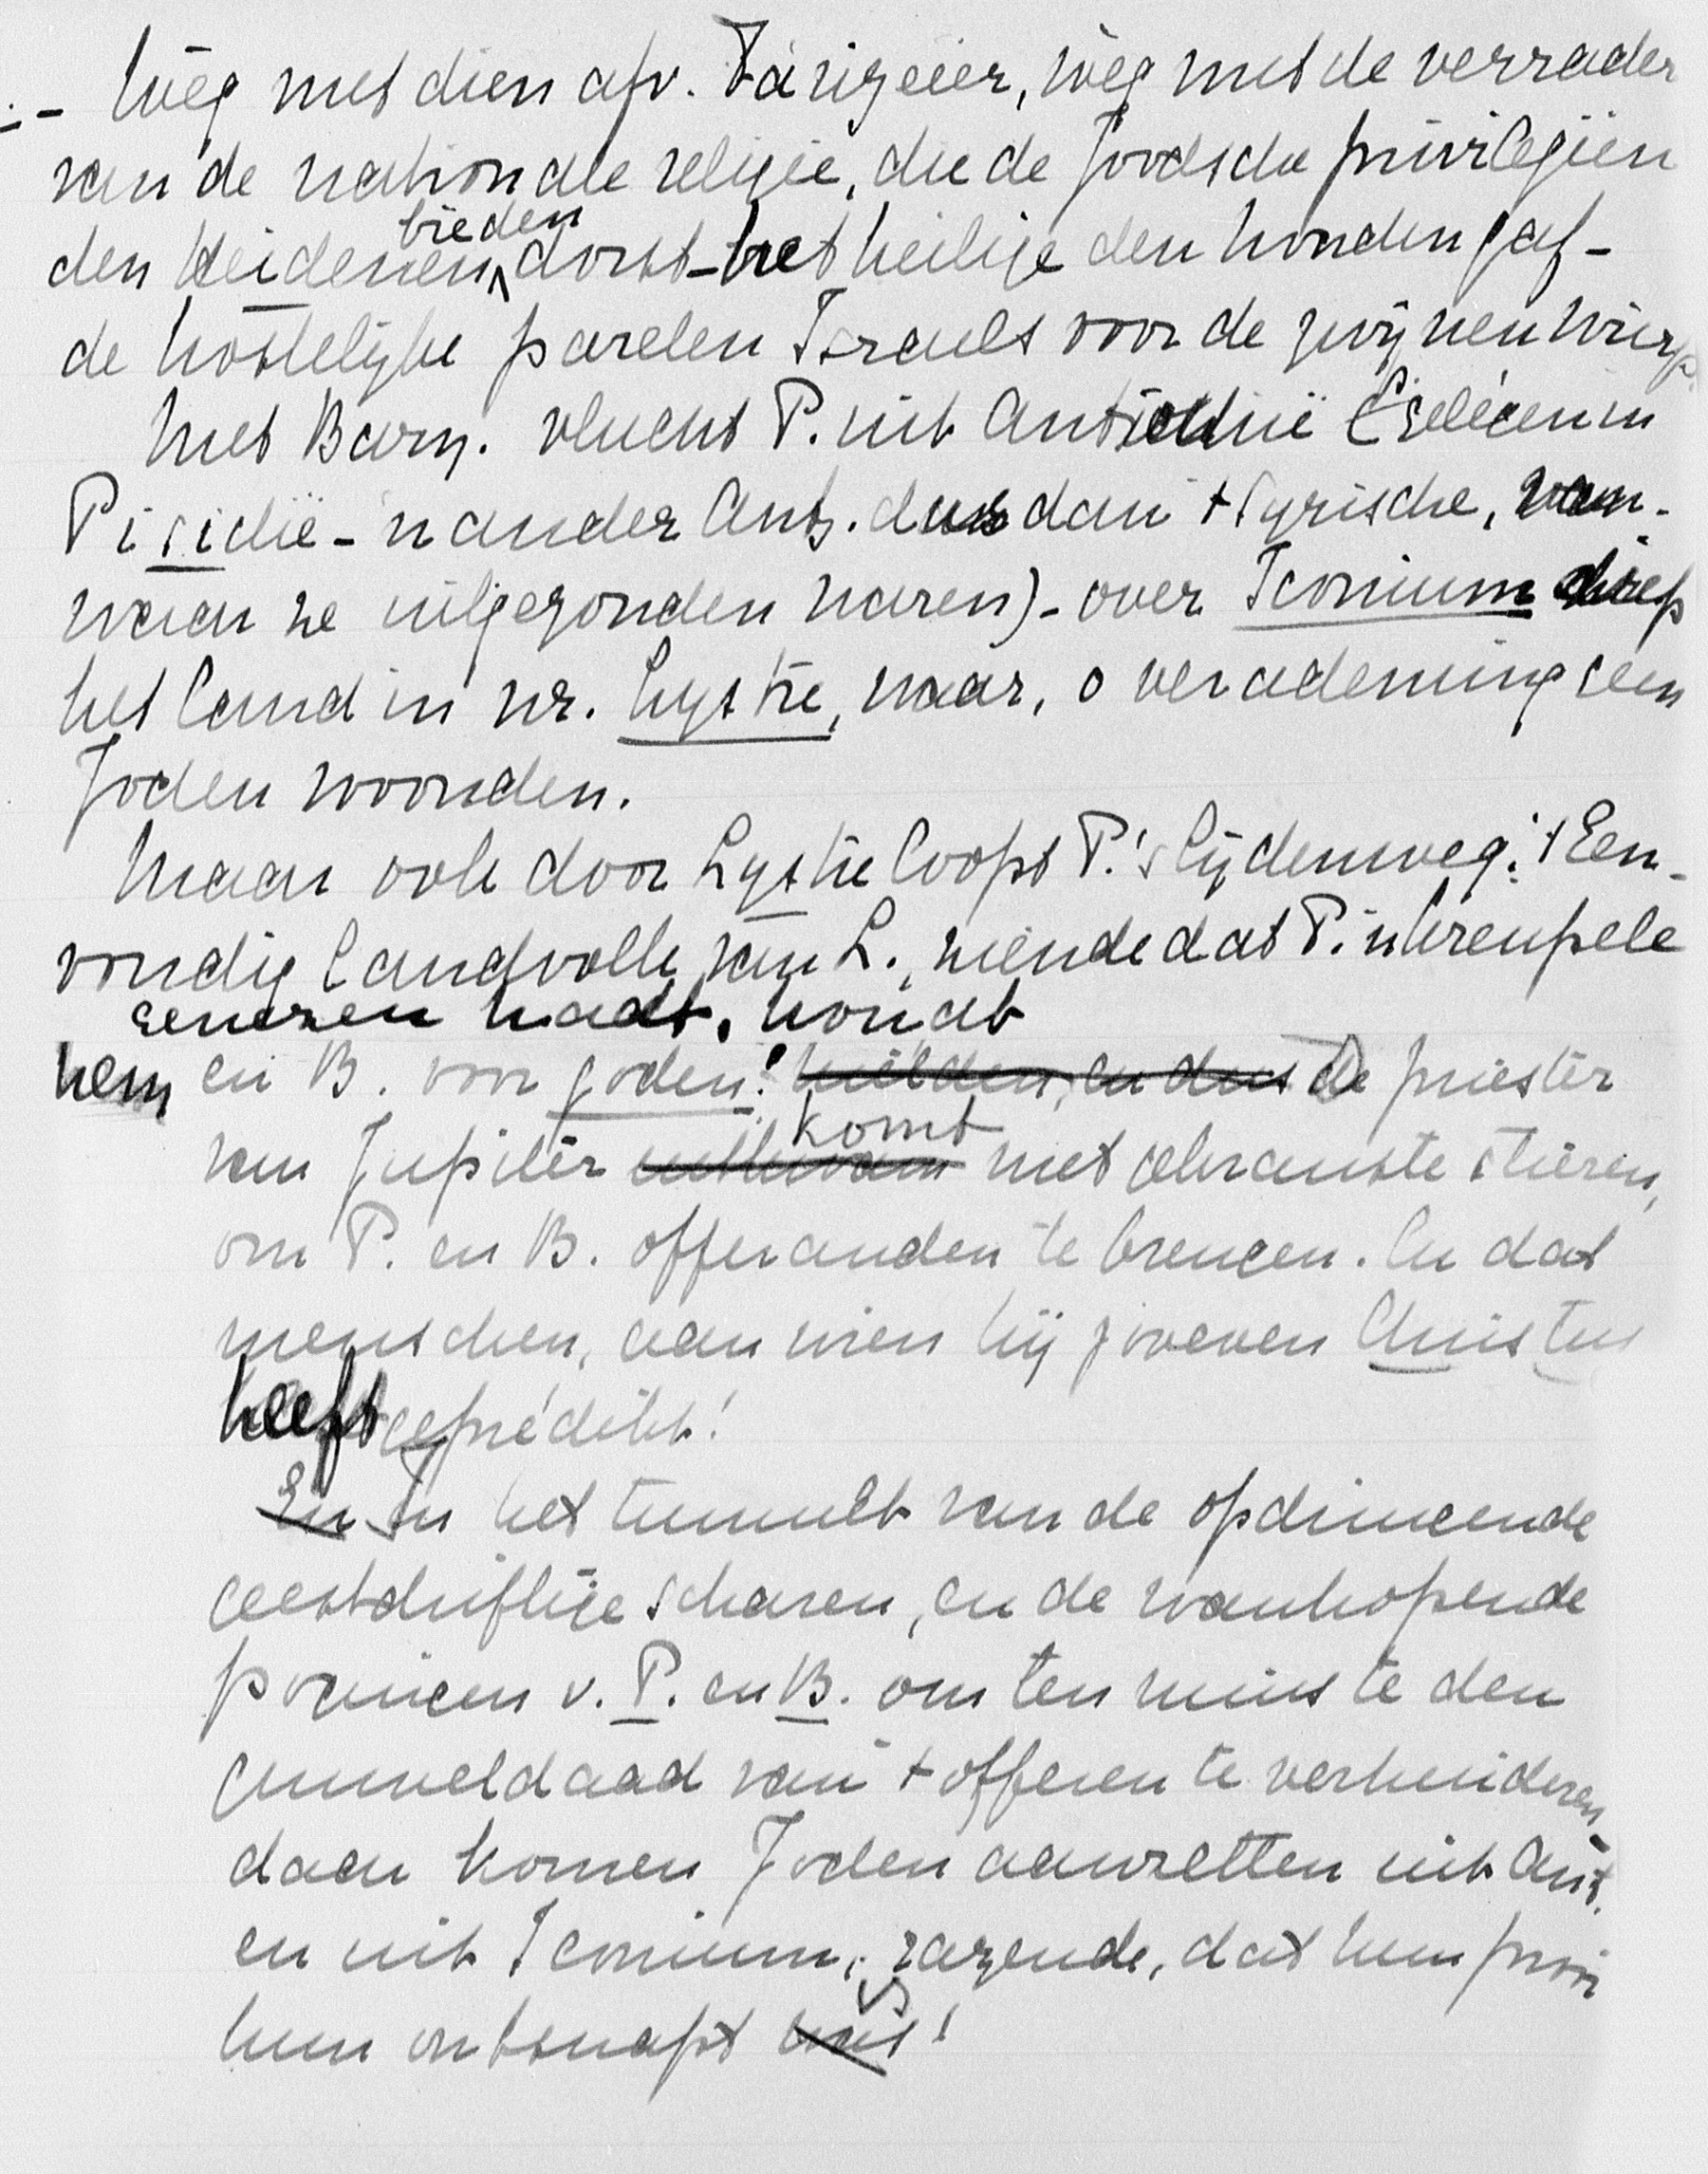 - Weg met dien afv. Farizeeër, weg met de verrader
van de nationale religie, die de Joodsche privilegiën
den Heidenen bieden dorst - het heilige den honden gaf -
de kostelijke parelen Israels voor de zwijnen wierp.
Met Barn. vlucht P. uit Antiochië (gelegen in
Pisidië - 'n ander Ant. dus dan 't Syrische, van-
waar ze uitgezonden waren) - over Iconium diep
het land in nr. Lystre, waar, o verademing geen
Joden woonden.
Maar ook door Lystre loopt P.'s lijdenweg: 't Een-
voudig landvolk van L., ziende dat P. 'n kreupele
genezen hadt, houdt
hem en B. voor goden! hielden, en dus De priester
van Jupiter komt met bekranste stieren,
om P. en B. offeranden te brengen. En dat
menschen, aan wien hij zoveven Christus
heeft gepredikt!
En In het tumult van de opdringende
geestdriftige scharen, en de wanhopende
pogingen v. P. en B. om ten minste den
gruweldaad van 't offeren te verhinderen,
daar komen Joden aanzetten uit Ant.
en uit Iconium, razende, dat hun prooi
hun ontsnapt is was!